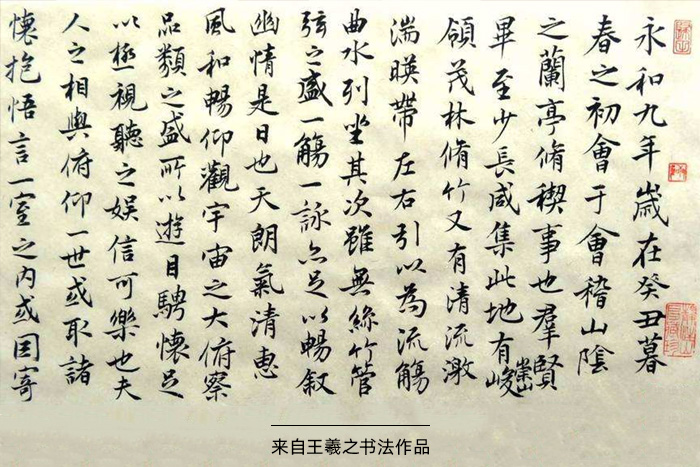 永和九年歲在癸丑暮
春之初會于會稽山陰
之蘭亭脩稧事也羣賢
畢至少長咸集此地有崇山峻
領茂林脩竹又有清流激
湍暎帶左右引以為流觴
曲水列坐其次雖無絲竹管
弦之盛一觴一詠亦足以暢叙
幽情是日也天朗氣清惠
風和暢仰觀宇宙之大俯察
品類之盛所以遊目騁懷足
以極視聽之娛信可樂也夫
人之相與俯仰一世或取諸
懷抱悟言一室之內或因寄
来自王羲之书法作品